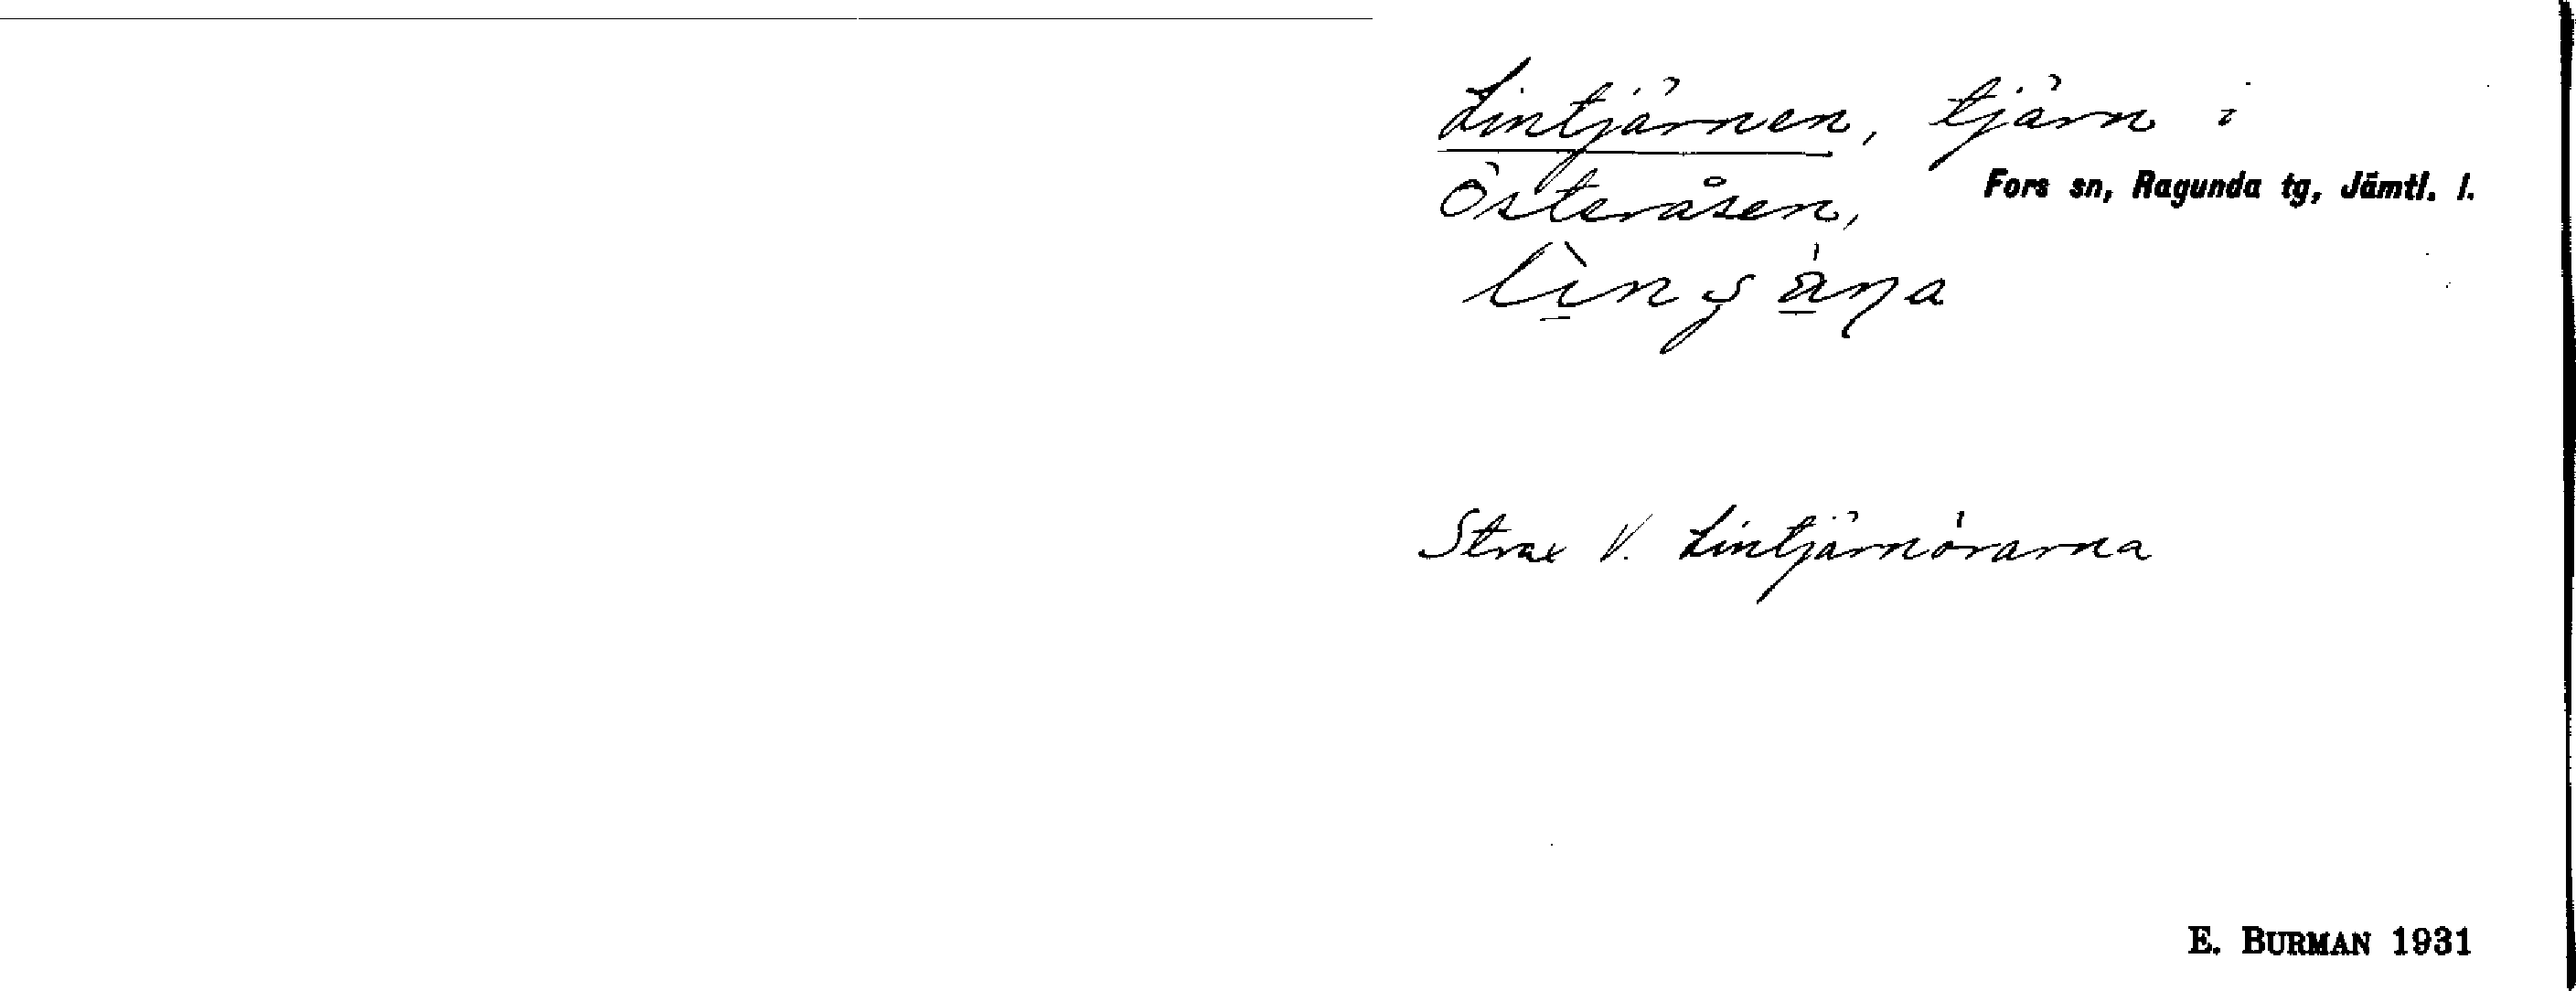 Lintjärnen, tjärn i
Österåsen,
Fors sn, Ragunda tg, Jämtl. l.
Strax V. Lintjärnörarna
E. BURMAN 1931